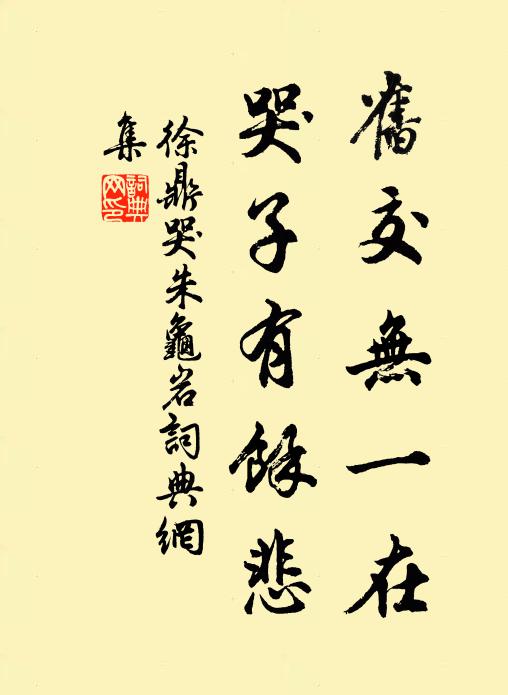 舊交無一在
哭子有餘悲
徐鼎哭朱龜岩詞典網
集
詞典
网印